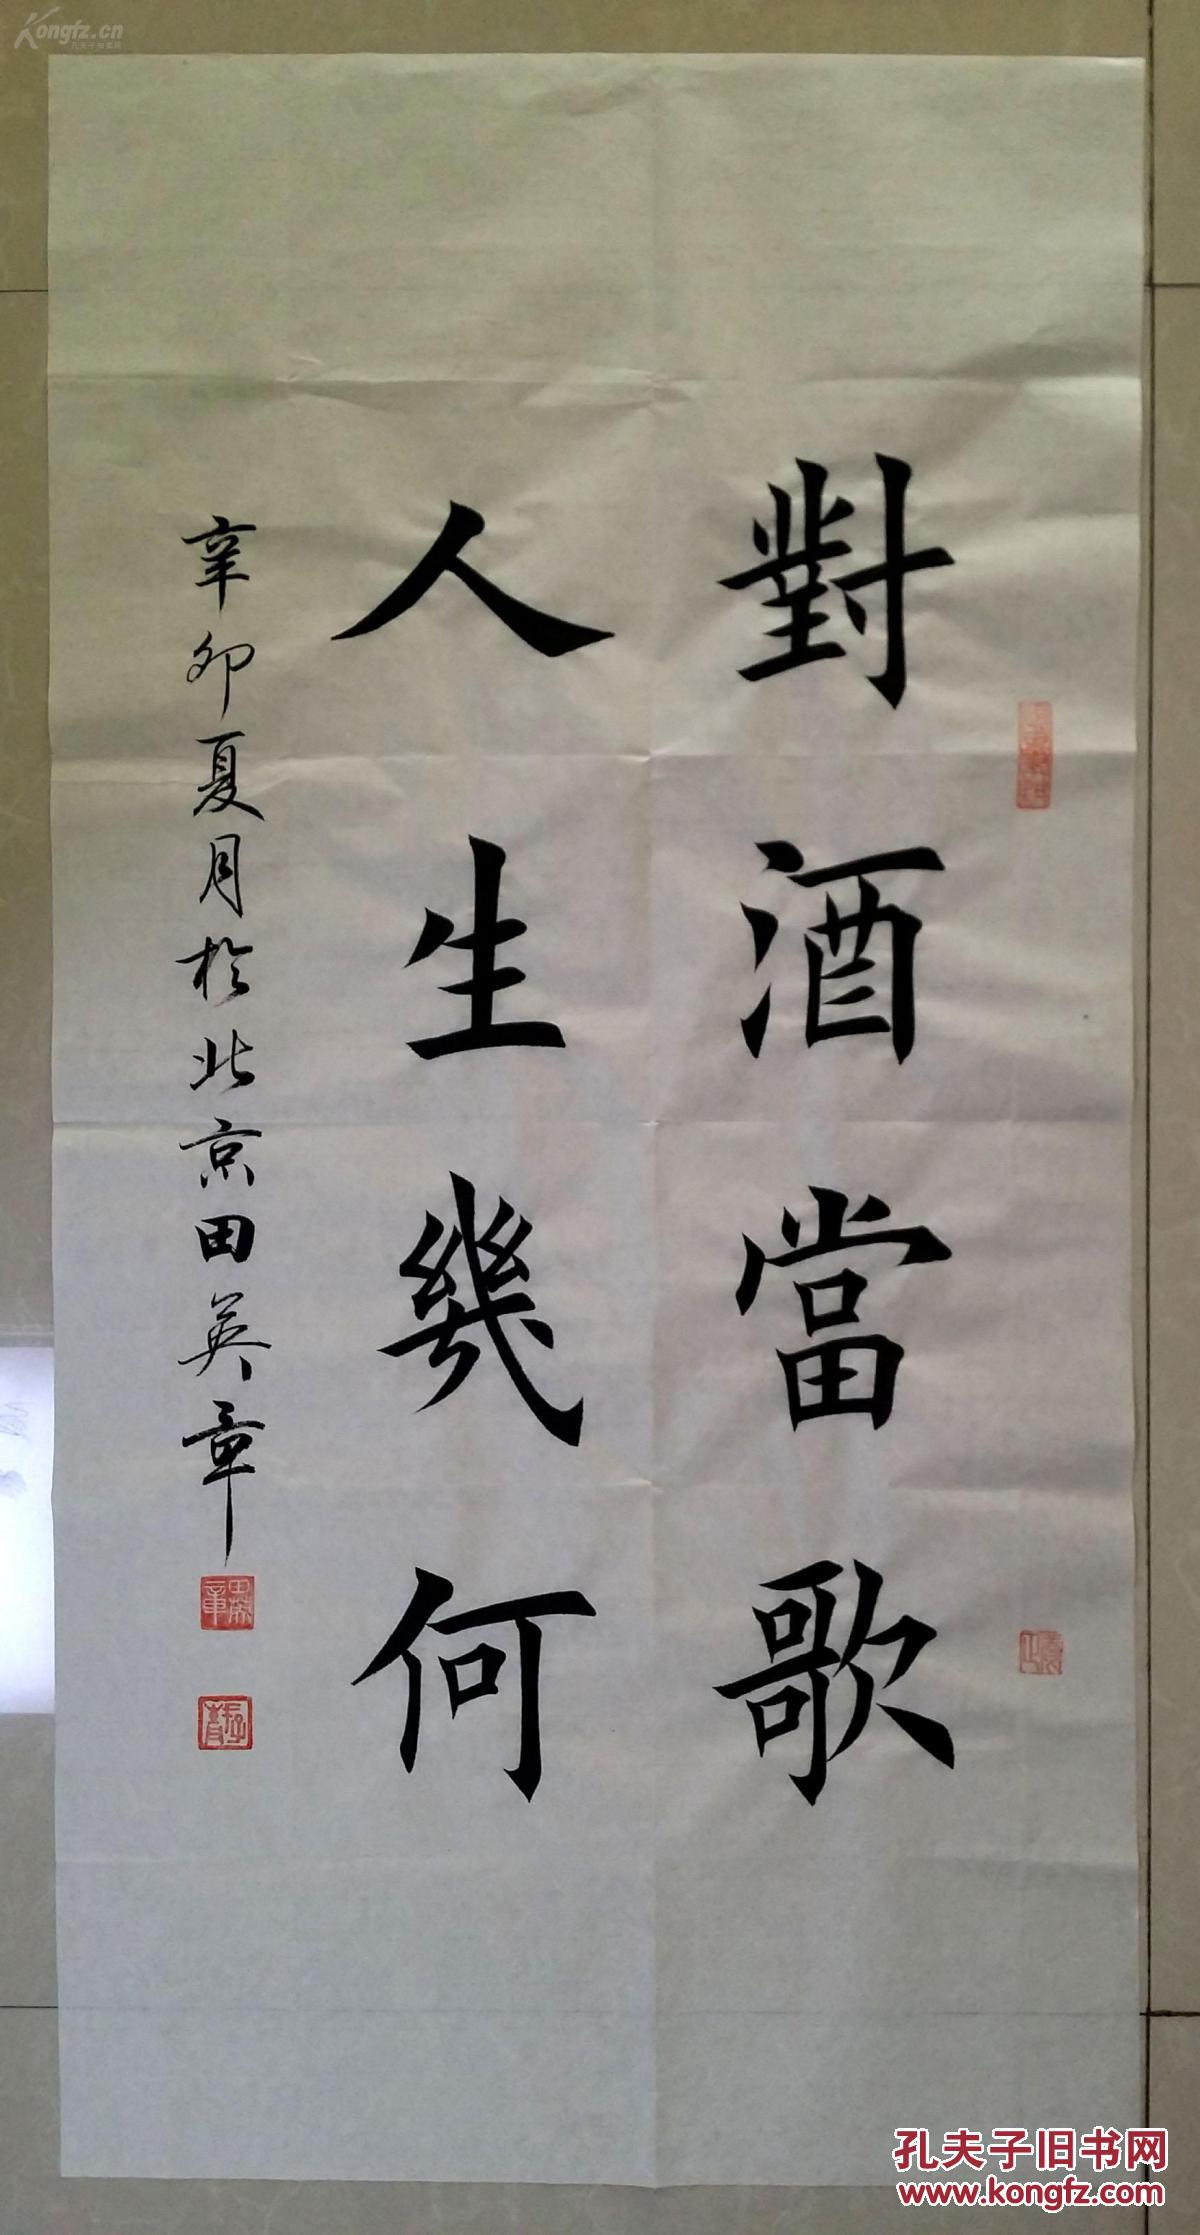 Kongfz.cn
孔夫子旧书网
對酒當歌
人生幾何
辛卯夏月於北京田英章
孔夫子旧书网
www.kongfz.com